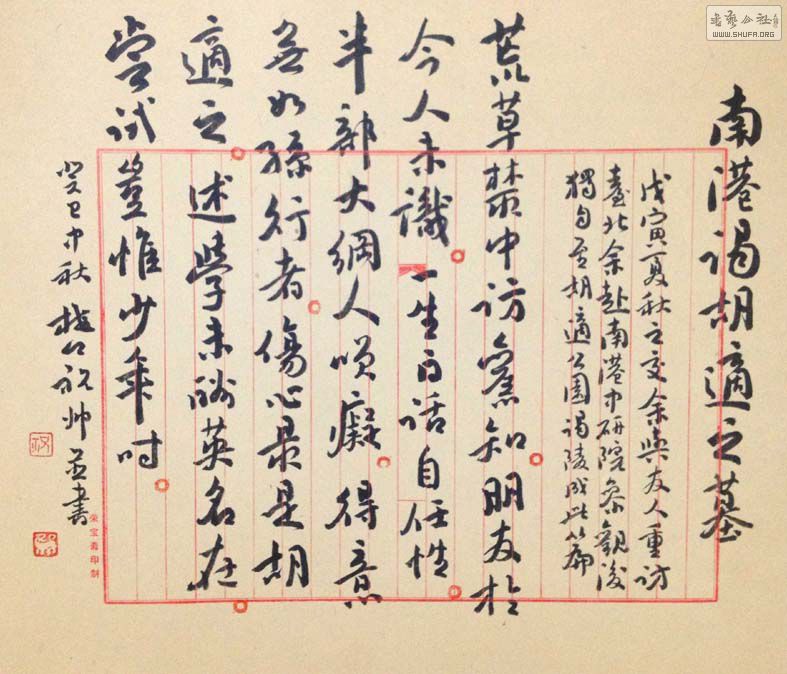 南港谒胡適之墓
戊寅夏秋之交余與友人重访
臺北余赴南港中研院參觀後
獨自至胡適公園谒陵成此篇
荒草叢中访舊知朋友於
今人未識一生白话自任性
半部大綱人嘆癡得意
無如孫行者傷心最是胡
適之述學未酬英名在
嘗試豈惟少年时
癸巳中秋 祝帅并書
榮宝斋印制
书艺公社
WWW.SHUFA.ORG